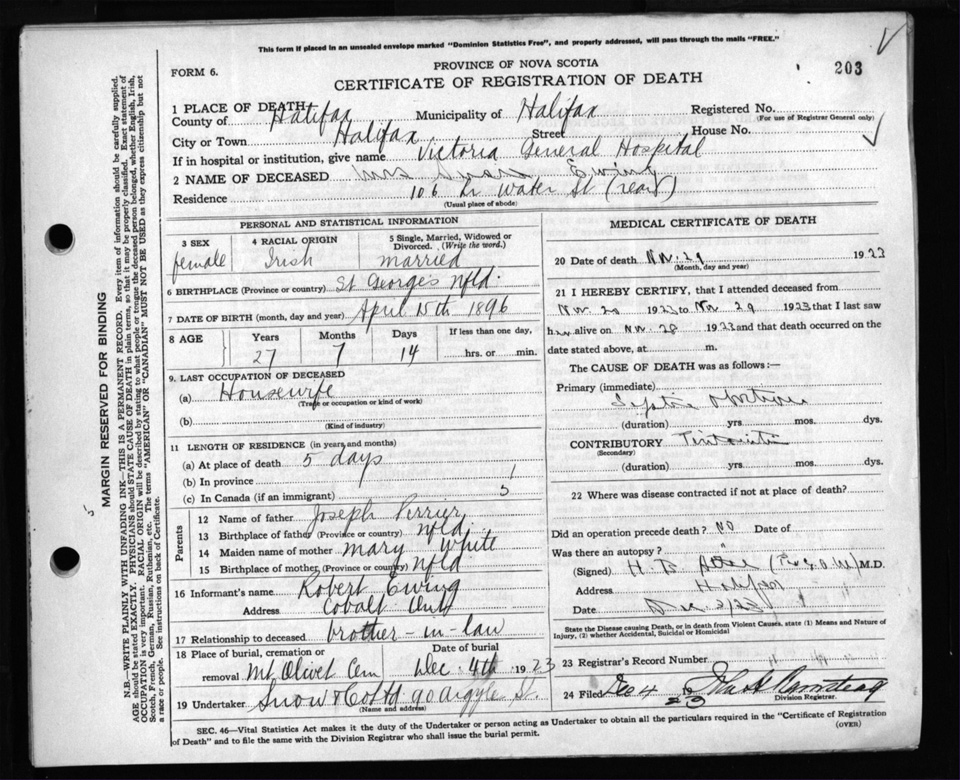 This form if placed in an unsealed envelope marked "Dominion Statistics Free", and properly addressed, will pass through the mails "FREE."
PROVINCE OF NOVA SCOTIA
FORM 6.
CERTIFICATE OF REGISTRATION OF DEATH
203
1 PLACE OF DEATH
County of Halifax Municipality of Halifax Registered No.
(For use of Registrar General only)
City or Town Halifax Street House No.
If in hospital or institution, give name Victoria General Hospital
2 NAME OF DECEASED Mrs Ewing
Residence 106 Water St (rear)
(Usual place of abode)
PERSONAL AND STATISTICAL INFORMATION
3 SEX 4 RACIAL ORIGIN 5 Single, Married, Widowed or Divorced. (Write the word.)
female Irish married
6 BIRTHPLACE (Province or country) St George's Nfld.
7 DATE OF BIRTH (month, day and year) April 15th 1896
8 AGE Years Months Days If less than one day,
27 7 14 hrs. or min.
9. LAST OCCUPATION OF DECEASED
(a) Housewife
(Trade or occupation or kind of work)
(b)
(Kind of industry)
11 LENGTH OF RESIDENCE (in years and months)
(a) At place of death 5 days
(b) In province
(c) In Canada (if an immigrant)
Parents
12 Name of father Joseph Perrier
13 Birthplace of father (Province or country) Nfld.
14 Maiden name of mother Mary White
15 Birthplace of mother (Province or country) Nfld
16 Informant's name Robert Ewing
Address Cobalt Ont
17 Relationship to deceased brother-in-law
18 Place of burial, cremation or removal Date of burial
Mt Olivet Cem Dec. 4th 1923
19 Undertaker Snow & Co Ltd 90 Argyle St.
(Name and address)
MEDICAL CERTIFICATE OF DEATH
20 Date of death Nov. 29 1923
(Month, day and year)
21 I HEREBY CERTIFY, that I attended deceased from
Nov. 20 1923 to Nov 29 1923 that I last saw
her alive on Nov. 28 1923 and that death occurred on the
date stated above, at m.
The CAUSE OF DEATH was as follows:—
Primary (immediate)
Septic Abortion
(duration) yrs. mos. dys.
CONTRIBUTORY Peritonitis
(Secondary)
(duration) yrs. mos. dys.
22 Where was disease contracted if not at place of death?
Did an operation precede death? No Date of
Was there an autopsy? "
(Signed) H. B. M.D.
Address Halifax
Date Dec. 2/23
State the Disease causing Death, or in death from Violent Causes, state (1) Means and Nature of Injury, (2) whether Accidental, Suicidal or Homicidal
23 Registrar's Record Number
24 Filed Dec 4 1923
Division Registrar.
SEC. 46—Vital Statistics Act makes it the duty of the Undertaker or person acting as Undertaker to obtain all the particulars required in the "Certificate of Registration
of Death" and to file the same with the Division Registrar who shall issue the burial permit.
(OVER)
MARGIN RESERVED FOR BINDING
N.B.—WRITE PLAINLY WITH UNFADING INK—THIS IS A PERMANENT RECORD. Every item of information should be carefully supplied.
AGE should be stated EXACTLY. PHYSICIANS should STATE CAUSE OF DEATH in plain terms, so that it may be properly classified. Exact statement of
OCCUPATION is very important. RACIAL ORIGIN will be described by stating to what people or tongue the deceased person belonged, whether English, Irish,
Scotch, French, German, Russian, Ruthenian, etc. The terms "AMERICAN" or "CANADIAN" MUST NOT BE USED as they express citizenship but not
a race or people. See instructions on back of Certificate.